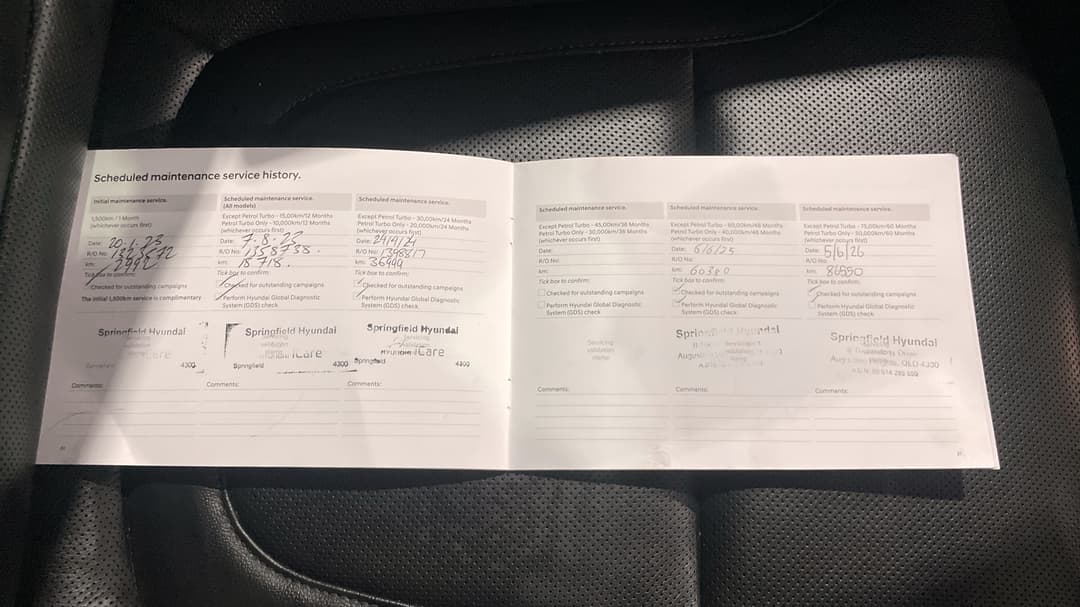 Scheduled maintenance service history.
Initial maintenance service.
1,500km / 1 Month
(whichever occurs first)
Date: 20.1.23
R/O No:
km: 2992
Tick box to confirm:
Checked for outstanding campaigns
The initial 1,500km service is complimentary
Springfield Hyundai
4300
Comments:
Scheduled maintenance service.
(All models)
Except Petrol Turbo - 15,00km/12 Months
Petrol Turbo Only - 10,000km/12 Months
(whichever occurs first)
Date: 7.8.23
R/O No: 1358735.
km: 18718.
Tick box to confirm:
Checked for outstanding campaigns
Perform Hyundai Global Diagnostic
System (GDS) check
Springfield Hyundai
iCare
Springfield 4300
Comments:
Scheduled maintenance service.
Except Petrol Turbo - 30,00km/24 Months
Petrol Turbo Only - 20,000km/24 Months
(whichever occurs first)
Date: 24/4/24
R/O No: 1398817
km: 36999
Tick box to confirm:
Checked for outstanding campaigns
Perform Hyundai Global Diagnostic
System (GDS) check
Springfield Hyundai
HYUNDAI iCare
Springfield 4300
Comments:
Scheduled maintenance service.
Except Petrol Turbo - 45,00km/36 Months
Petrol Turbo Only - 30,000km/36 Months
(whichever occurs first)
Date:
R/O No:
km:
Tick box to confirm:
Checked for outstanding campaigns
Perform Hyundai Global Diagnostic
System (GDS) check
Servicing
validation
stamp
Comments:
Scheduled maintenance service.
Except Petrol Turbo - 60,00km/48 Months
Petrol Turbo Only - 40,000km/48 Months
(whichever occurs first)
Date: 6/6/25
R/O No:
km: 60380
Tick box to confirm:
Checked for outstanding campaigns
Perform Hyundai Global Diagnostic
System (GDS) check
Springfield Hyundai
Comments:
Scheduled maintenance service.
Except Petrol Turbo - 75,00km/60 Months
Petrol Turbo Only - 50,000km/60 Months
(whichever occurs first)
Date: 5/6/26
R/O No:
km: 86590
Tick box to confirm:
Checked for outstanding campaigns
Perform Hyundai Global Diagnostic
System (GDS) check
Springfield Hyundai
Heights, QLD 4300
Comments: